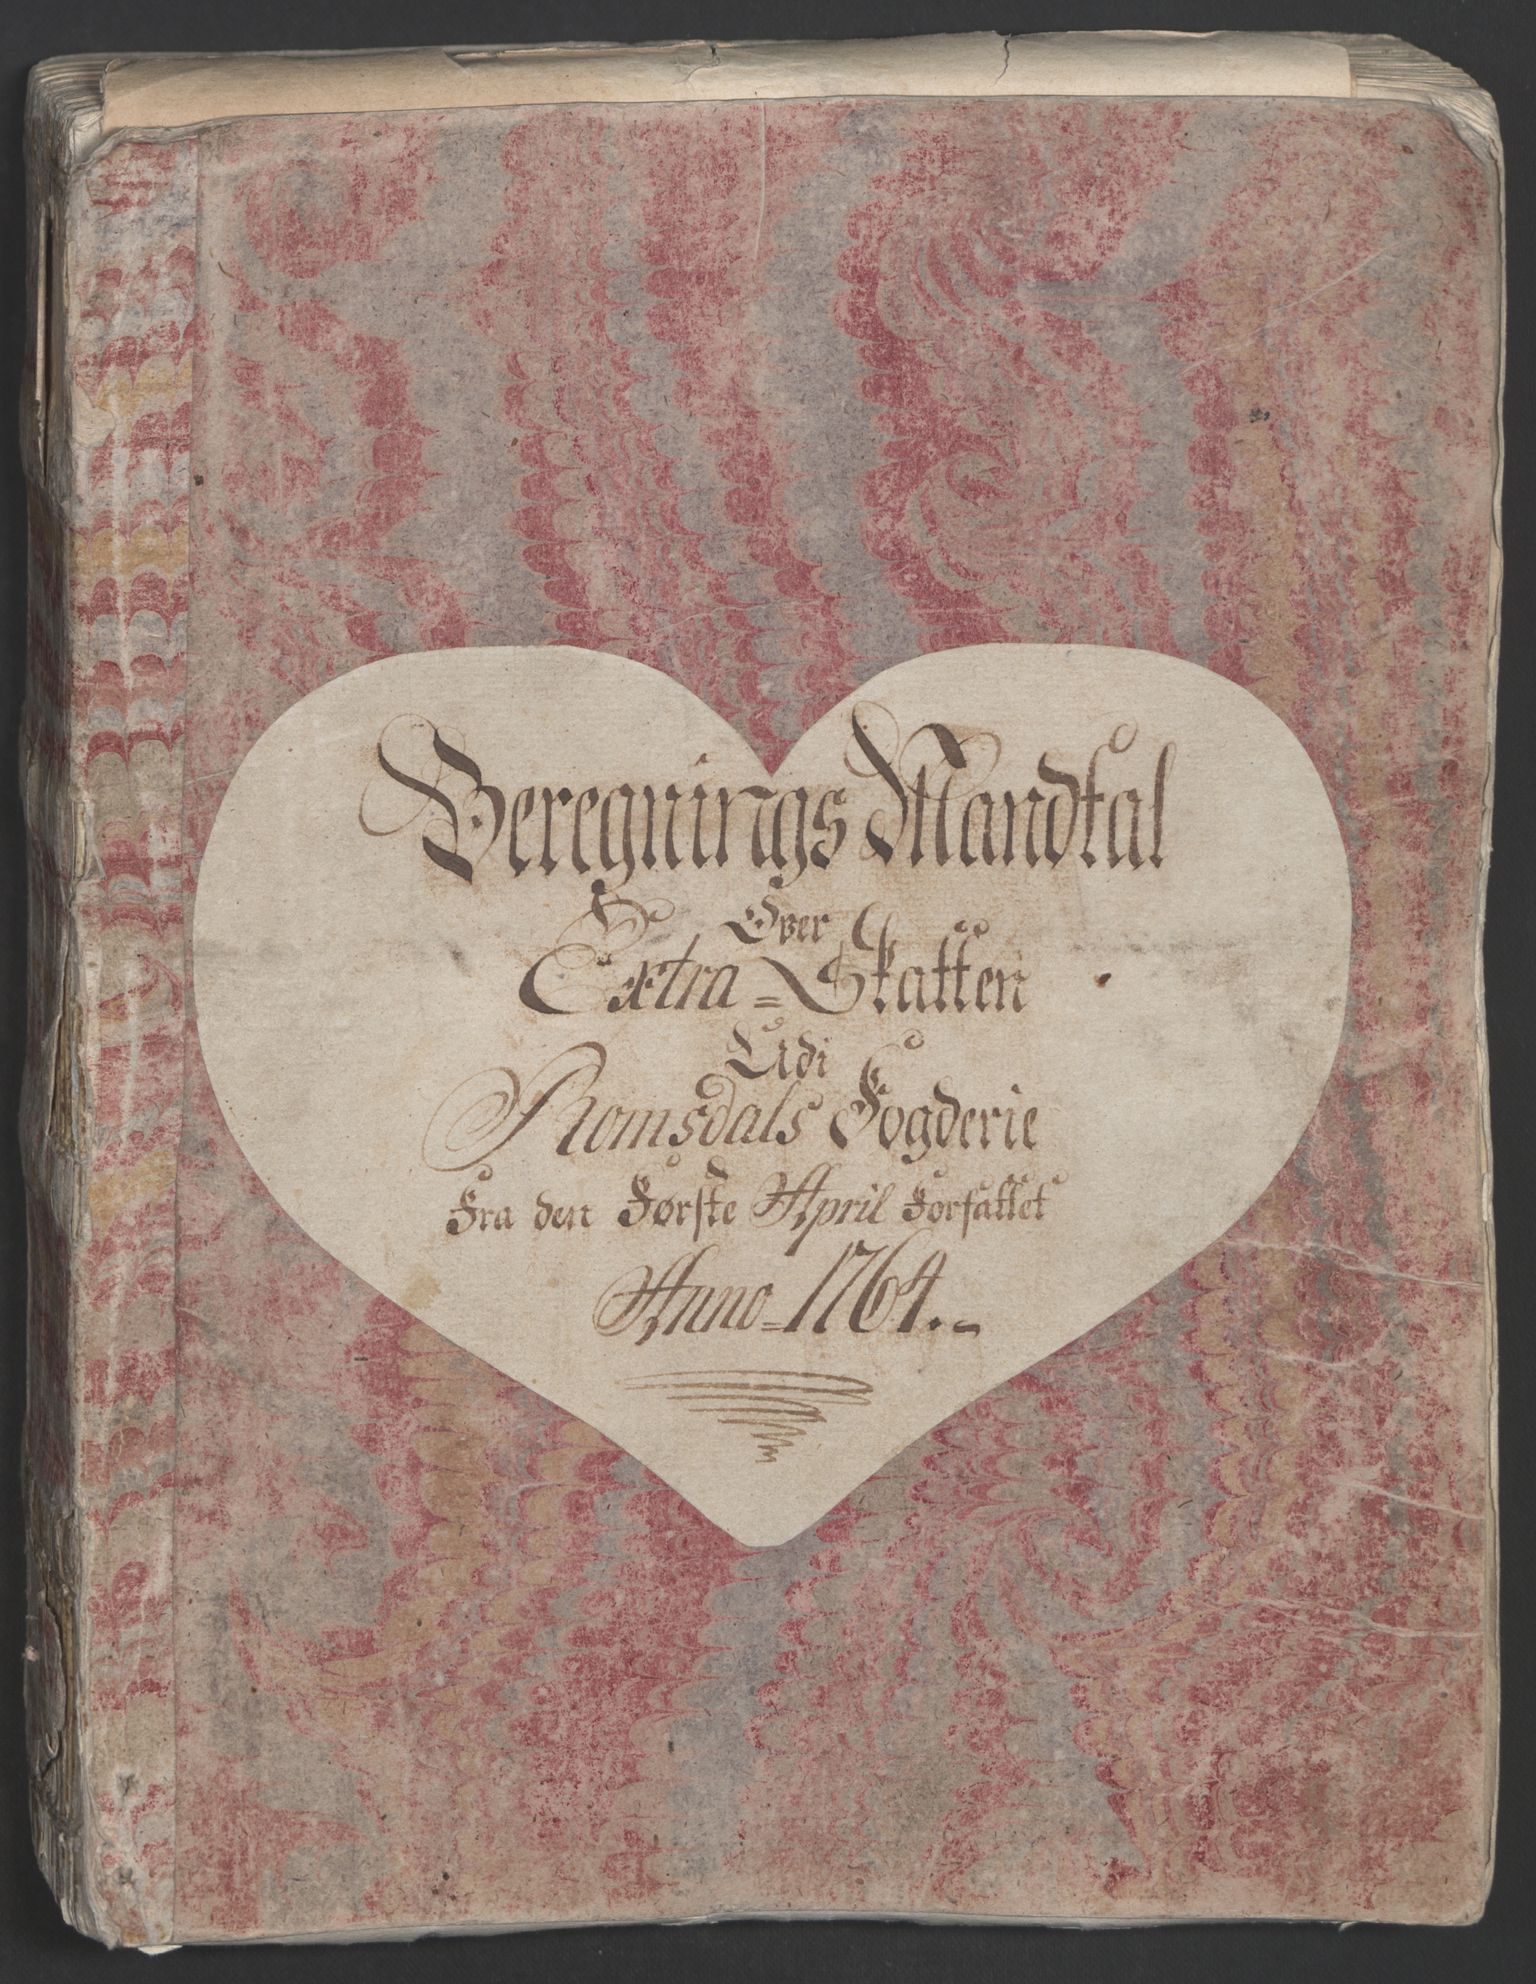 Beregnings Mandtal
Over
Extra-Skatten
Udi
Romsdals Fogderie
Fra den Første April Forfattet
Anno 1764.-